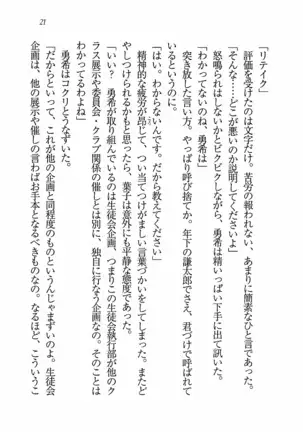 21
「リテイク」
評価を受けたのは文字だけ。苦労の報われない、あまりに簡素なひと言であった。
「そんな……どこが悪いのか説明してくださいよ」
怒鳴られはしないかとビクビクしながら、勇希は精いっぱい下手に出て訊いた。
「わかってないのね、勇希は」
突き放した言い方。やっぱり呼び捨てか。年下の謙太郎でさえ、君づけで呼ばれて
いるというのに。
「はい。わかってません。だから教えてください」
精神的な疲労が昂じて、つい当てつけがましい言葉づかいをしてしまった。またど
やしつけられるかもと思ったら、葉子は意外にも平静な態度であった。
「いい？　勇希が取り組んでいるのは生徒会企画、つまりこの生徒会執行部が他のク
ラス展示や委員会・クラブ関係の催しとは別に、独自に行なう企画なの。そのことは
わかってるわね」
勇希はコクリとうなずいた。
「だからといって、これが他の企画と同程度のものというんじゃまずいのよ。生徒会
企画は、他の展示や催しの言わばお手本となるべきものなの。なるほど、こういうこ